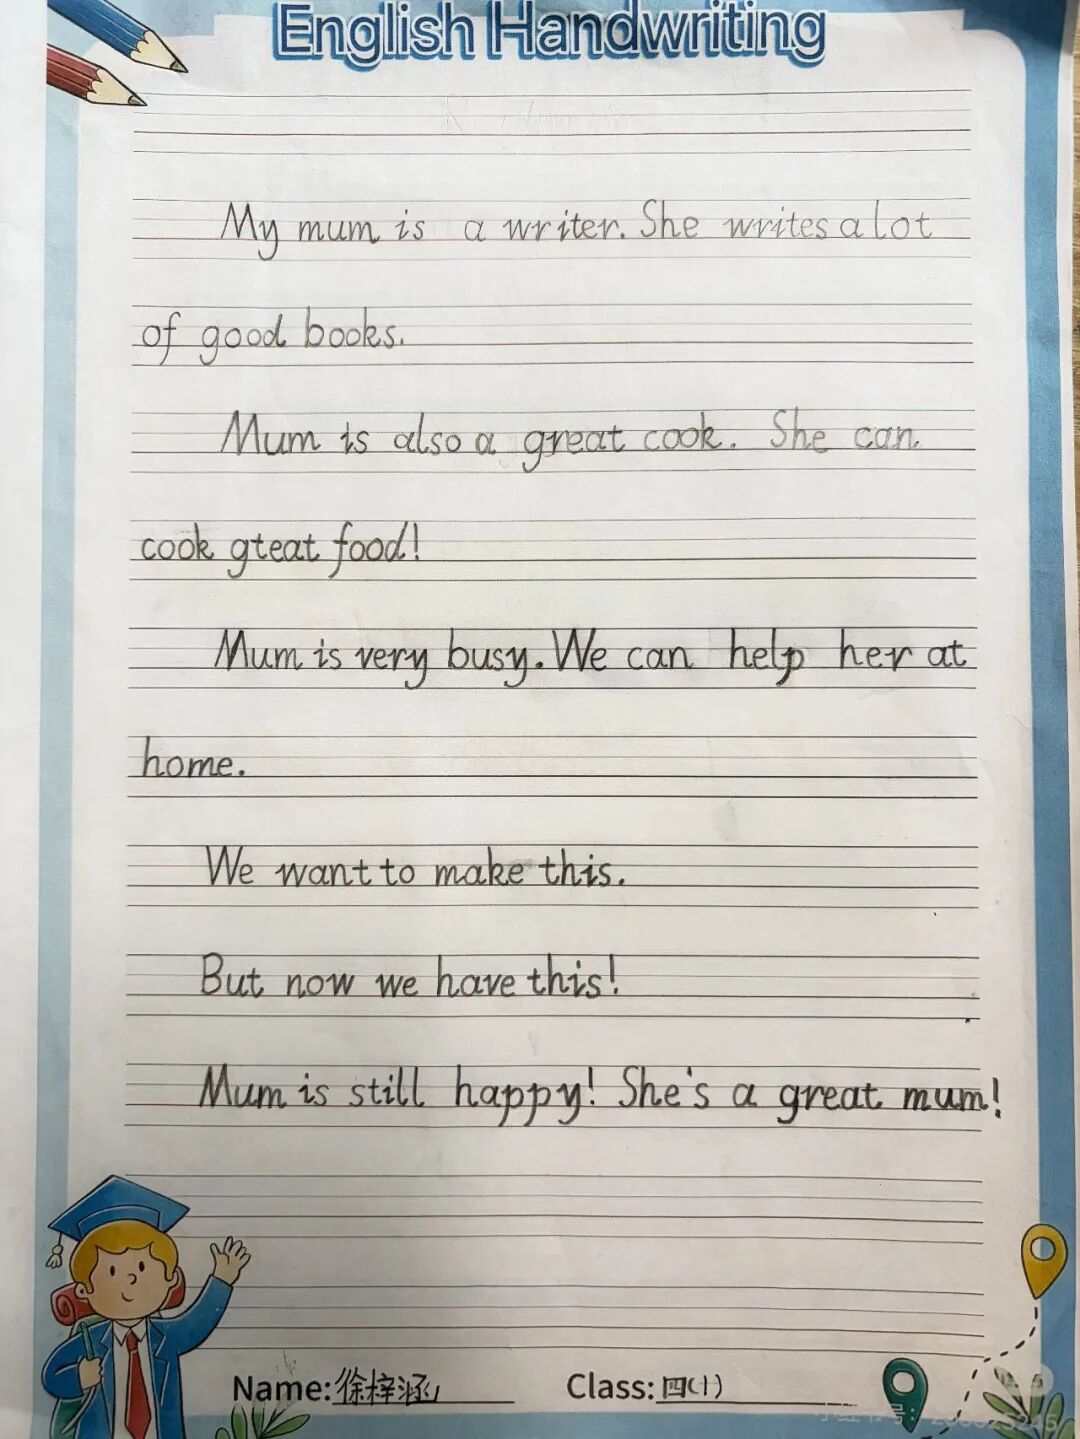 English Handwriting
My mum is a writer. She writes a lot
of good books.
Mum is also a great cook. She can
cook gteat food!
Mum is very busy. We can help her at
home.
We want to make this.
But now we have this!
Mum is still happy! She's a great mum!
Name:徐梓涵 Class:四(1)